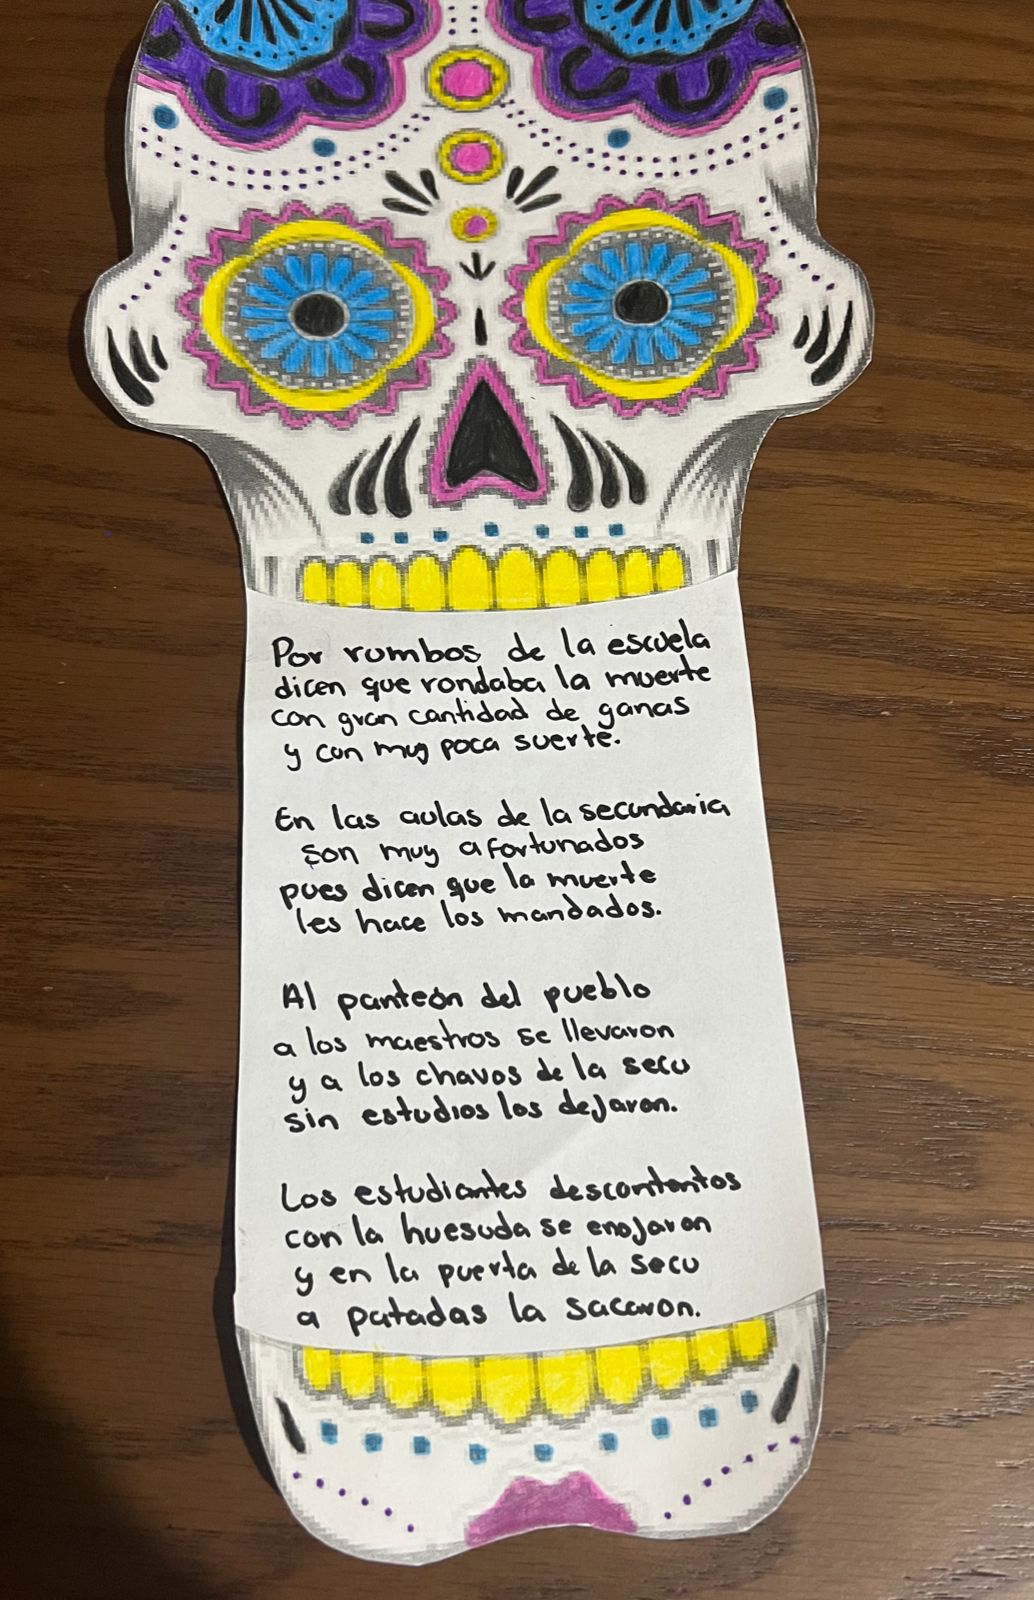 Por rumbos de la escuela
dicen que rondaba la muerte
con gran cantidad de ganas
y con muy poca suerte.
En las aulas de la secundaria
son muy afortunados
pues dicen que la muerte
les hace los mandados.
Al panteón del pueblo
a los maestros se llevaron
y a los chavos de la secu
sin estudios los dejaron.
Los estudiantes descontentos
con la huesuda se enojaron
y en la puerta de la secu
a patadas la sacaron.